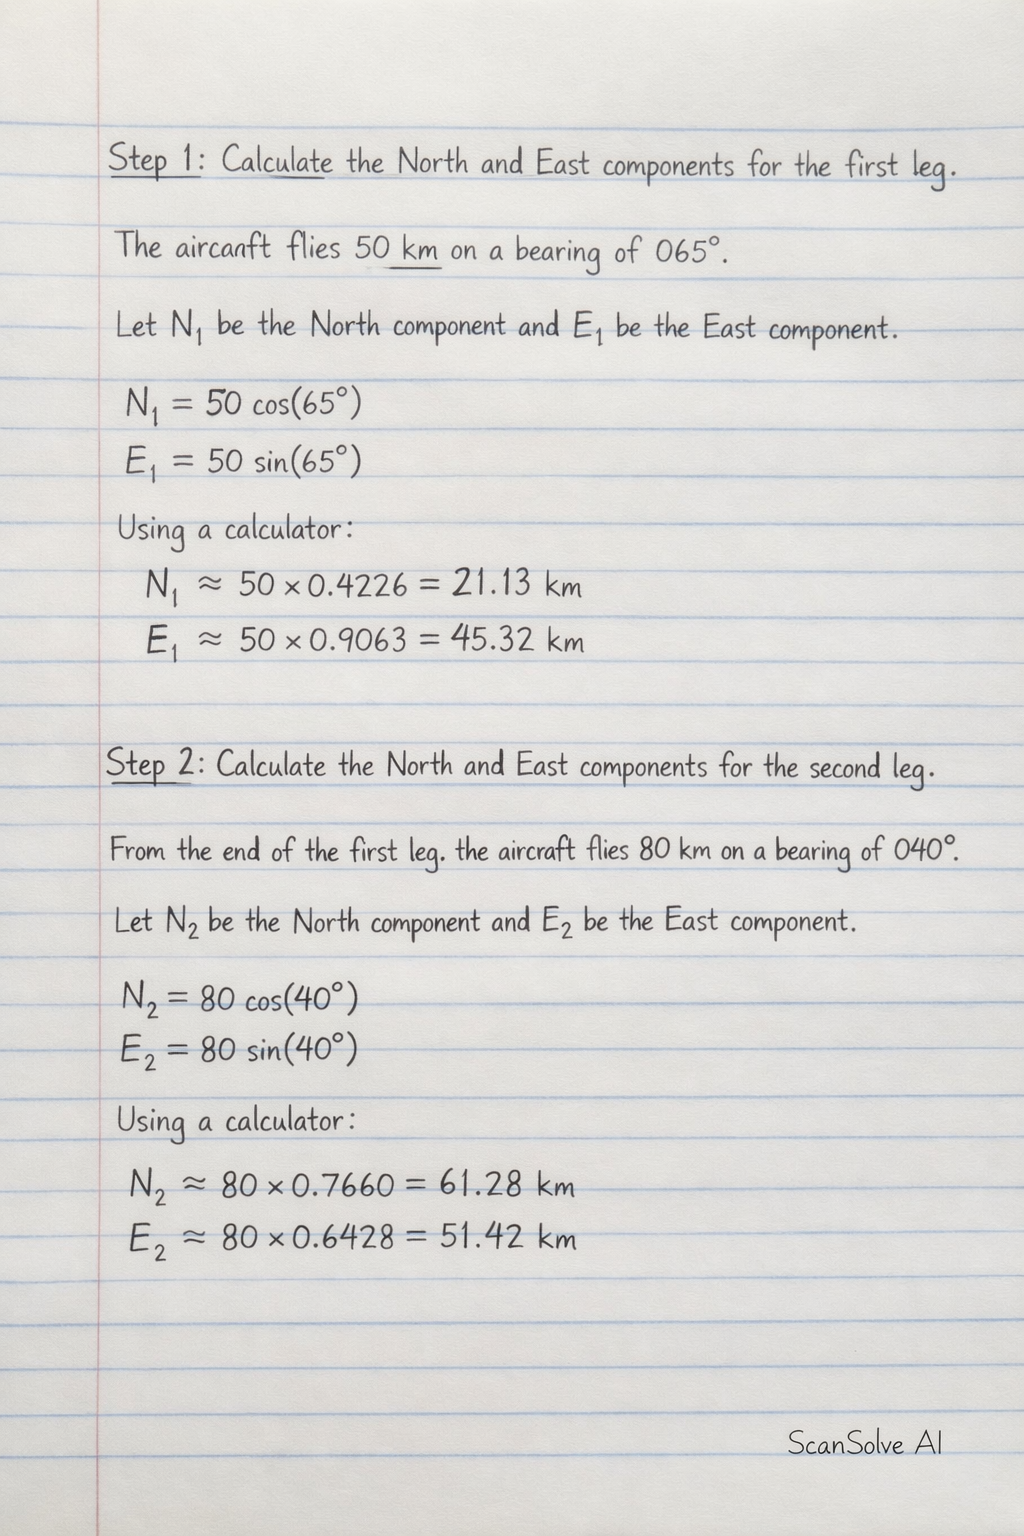 Step 1: Calculate the North and East components for the first leg.
The aircanft flies 50 km on a bearing of 065°.
Let N₁ be the North component and E₁ be the East component.
N₁ = 50 cos(65°)
E₁ = 50 sin(65°)
Using a calculator:
N₁ ≈ 50 × 0.4226 = 21.13 km
E₁ ≈ 50 × 0.9063 = 45.32 km
Step 2: Calculate the North and East components for the second leg.
From the end of the first leg. the aircraft flies 80 km on a bearing of 040°.
Let N₂ be the North component and E₂ be the East component.
N₂ = 80 cos(40°)
E₂ = 80 sin(40°)
Using a calculator:
N₂ ≈ 80 × 0.7660 = 61.28 km
E₂ ≈ 80 × 0.6428 = 51.42 km
ScanSolve AI